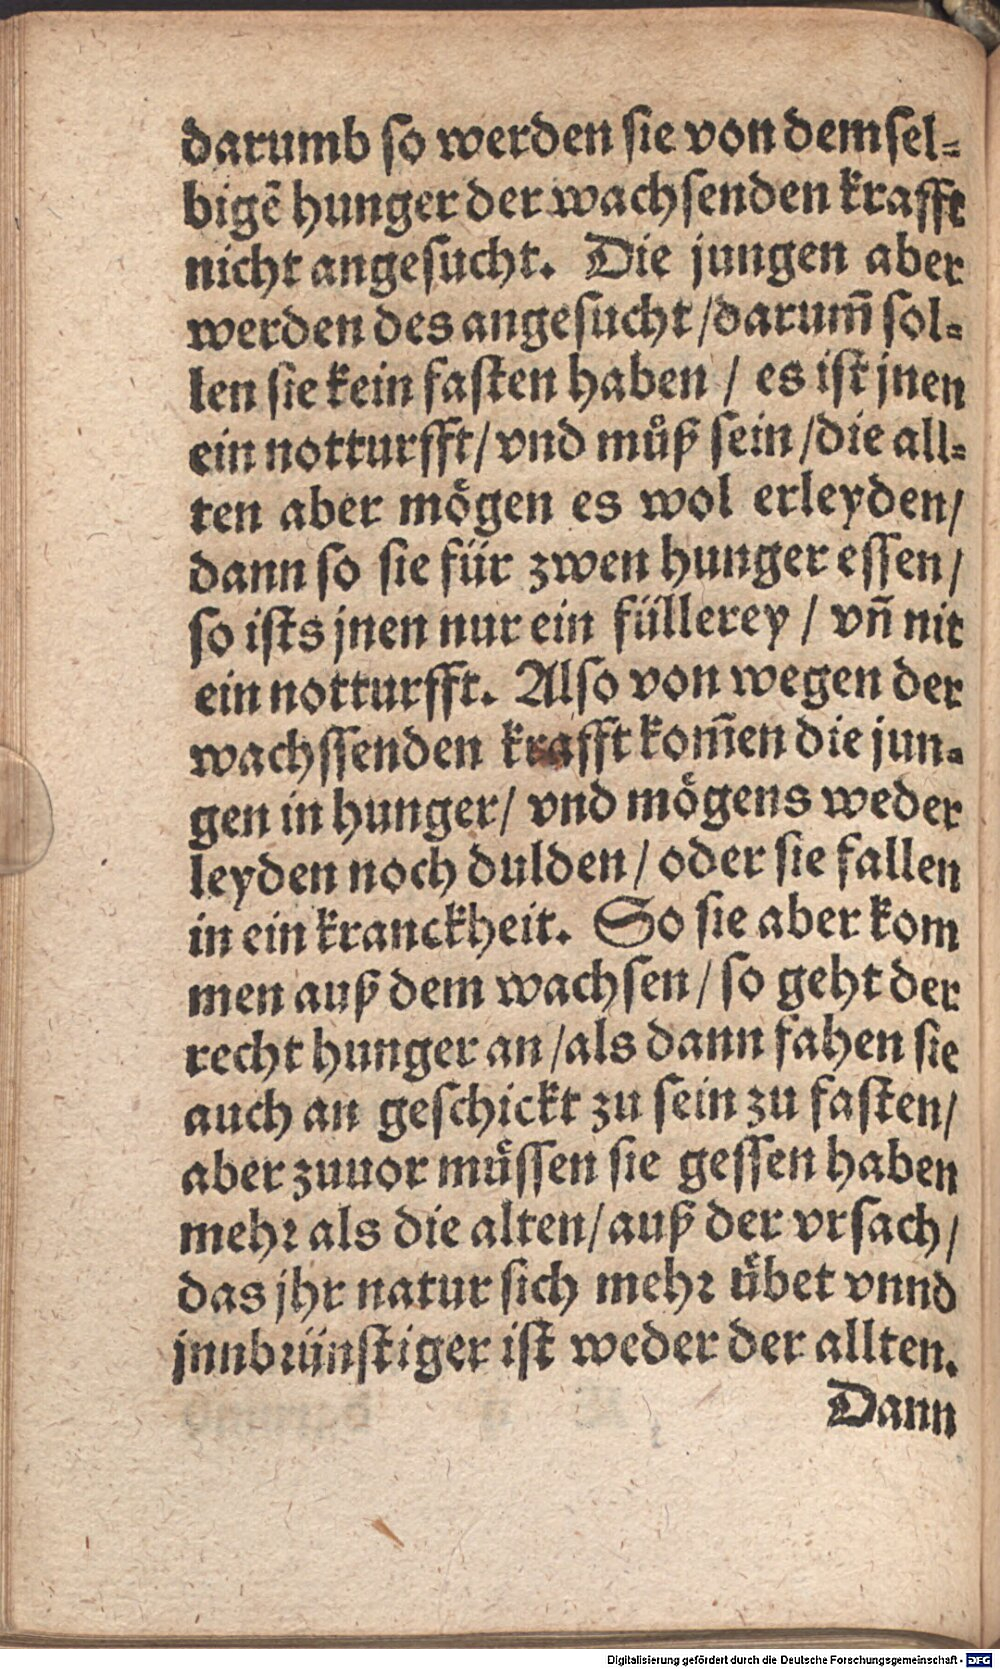 darumb so werden sie von demsel-
bigē hunger der wachsenden krafft
nicht angesucht. Die jungen aber
werden des angesucht/darum̄ sol-
len sie kein fasten haben / es ist jnen
ein notturfft/vnd müß sein/die all-
ten aber mögen es wol erleyden/
dann so sie für zwen hunger essen/
so ists jnen nur ein füllerey / vn̄ nit
ein notturfft. Also von wegen der
wachssenden krafft kom̄en die jun-
gen in hunger/ vnd mögens weder
leyden noch dulden/ oder sie fallen
in ein kranckheit. So sie aber kom
men auß dem wachsen/ so geht der
recht hunger an/als dann fahen sie
auch an geschickt zu sein zu fasten/
aber zuuor müssen sie gessen haben
mehr als die alten/auß der vrsach/
das jhr natur sich mehr übet vnnd
jnnbrünstiger ist weder der allten.
Dann
Digitalisierung gefördert durch die Deutsche Forschungsgemeinschaft - DFG